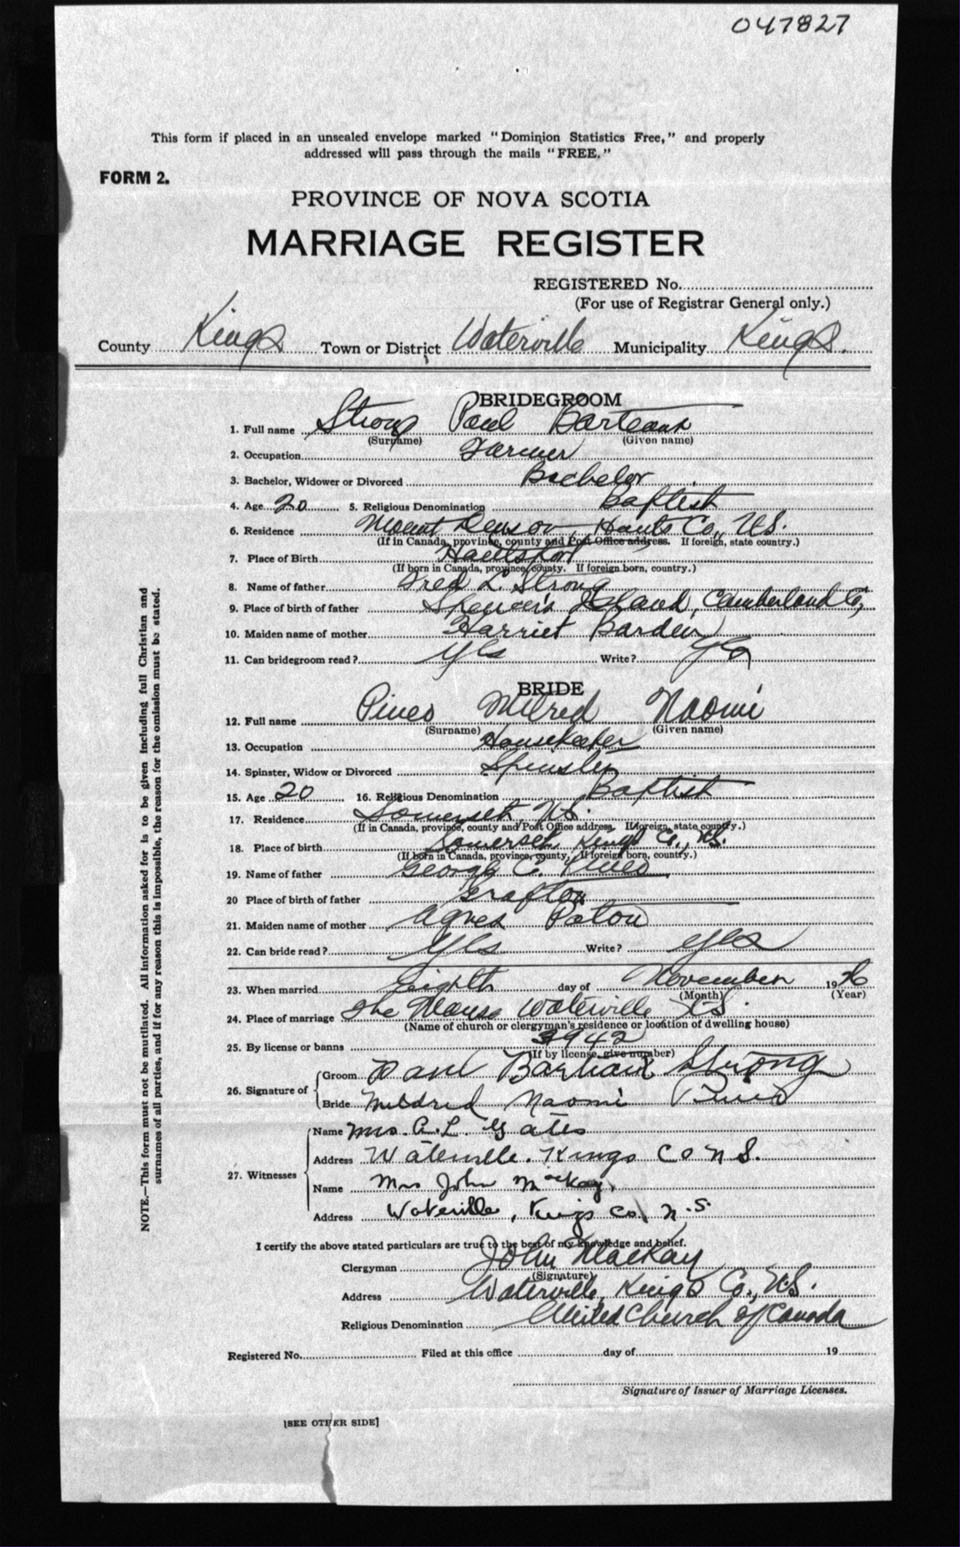 047827
This form if placed in an unsealed envelope marked "Dominion Statistics Free," and properly
addressed will pass through the mails "FREE."
FORM 2.
PROVINCE OF NOVA SCOTIA
MARRIAGE REGISTER
REGISTERED No.
(For use of Registrar General only.)
County Kings Town or District Waterville Municipality Kings.
BRIDEGROOM
1. Full name Strong Paul Barteaux
(Surname) (Given name)
2. Occupation Farmer
3. Bachelor, Widower or Divorced Bachelor
4. Age 20 5. Religious Denomination Baptist
6. Residence Mount Denson, Hants Co., N.S.
(If in Canada, province, county and Post Office address. If foreign, state country.)
7. Place of Birth Hantsport
(If born in Canada, province, county. If foreign born, country.)
8. Name of father Fred L. Strong
9. Place of birth of father Spencer's Island, Cumberland Co,
10. Maiden name of mother Harriet
11. Can bridegroom read? Yes Write? Yes
BRIDE
12. Full name Pineo Mildred Naomi
(Surname) (Given name)
13. Occupation Housekeeper
14. Spinster, Widow or Divorced Spinster
15. Age 20 16. Religious Denomination Baptist
17. Residence Somerset, N.S.
(If in Canada, province, county and Post Office address. If foreign, state country.)
18. Place of birth Somerset, Kings Co., N.S.
(If born in Canada, province, county, If foreign born, country.)
19. Name of father George C. Pineo
20 Place of birth of father Grafton
21. Maiden name of mother Agnes Paton
22. Can bride read? Yes Write? Yes
23. When married Eighth day of November 1926
(Month) (Year)
24. Place of marriage The Manse Waterville N.S.
(Name of church or clergyman's residence or location of dwelling house)
25. By license or banns 3942
(If by license, give number)
26. Signature of Groom Paul Barteaux Strong
Bride Mildred Naomi Pineo
27. Witnesses Name Mrs. A. L. Gates
Address Waterville. Kings Co N.S.
Name Mrs John Mackay,
Address Waterville, Kings Co, N.S.
I certify the above stated particulars are true to the best of my knowledge and belief.
Clergyman John Mackay
(Signature)
Address Waterville, Kings Co., N.S.
Religious Denomination United Church of Canada
Registered No. Filed at this office day of 19
Signature of Issuer of Marriage Licenses.
[SEE OTHER SIDE]
NOTE.—This form must not be mutilated. All information asked for is to be given including full Christian and
surnames of all parties, and if for any reason this is impossible, the reason for the omission must be stated.